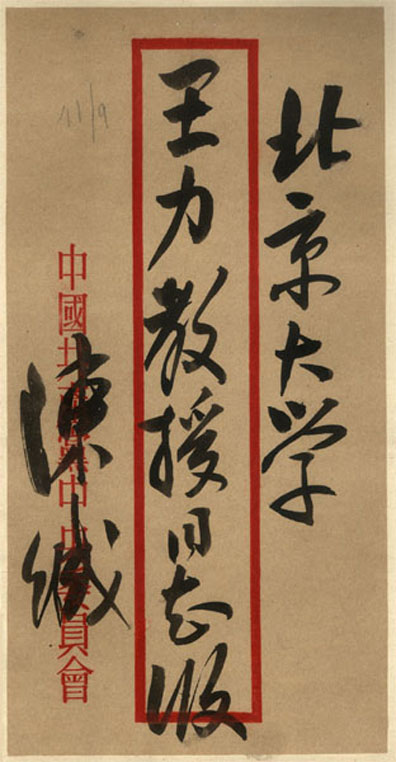 北京大学
王力教授同志收
陳缄
中國共產黨中央委員會
11/9